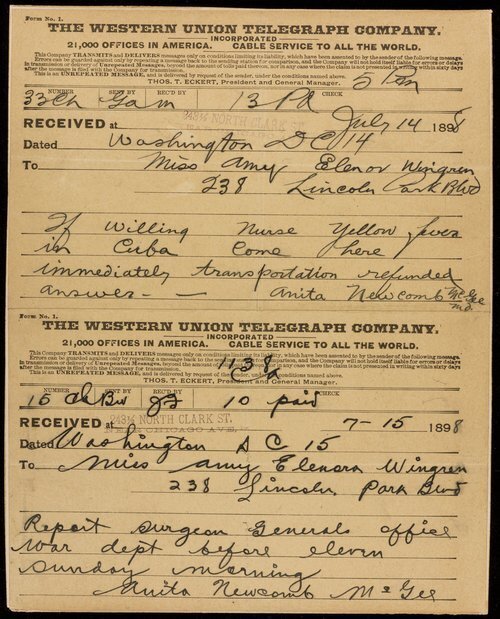 Form No. 1.
THE WESTERN UNION TELEGRAPH COMPANY.
INCORPORATED
21,000 OFFICES IN AMERICA. CABLE SERVICE TO ALL THE WORLD.
This Company TRANSMITS and DELIVERS messages only on conditions limiting its liability, which have been assented to by the sender of the following message.
Errors can be guarded against only by repeating a message back to the sending station for comparison, and the Company will not hold itself liable for errors or delays
in transmission or delivery of Unrepeated Messages, beyond the amount of tolls paid thereon, nor in any case where the claim is not presented in writing within sixty days
after the message is filed with the Company for transmission.
This is an UNREPEATED MESSAGE, and is delivered by request of the sender, under the conditions named above.
THOS. T. ECKERT, President and General Manager.
5 Pm
NUMBER SENT BY REC'D BY CHECK
33 Ch Ga m 13 Pd
NORTH CLARK ST.
RECEIVED at July 14 1898
Dated Washington D C 14
To Miss Amy Elenor Wingren
238 Lincoln Park Blvd
If Willing Nurse Yellow fever
in Cuba Come here
immediately transportation refunded
answer - - Anita Newcomb McGee
M.D.
Form No. 1.
THE WESTERN UNION TELEGRAPH COMPANY.
INCORPORATED
21,000 OFFICES IN AMERICA. CABLE SERVICE TO ALL THE WORLD.
This Company TRANSMITS and DELIVERS messages only on conditions limiting its liability, which have been assented to by the sender of the following message.
Errors can be guarded against only by repeating a message back to the sending station for comparison, and the Company will not hold itself liable for errors or delays
in transmission or delivery of Unrepeated Messages, beyond the amount of tolls paid thereon, nor in any case where the claim is not presented in writing within sixty days
after the message is filed with the Company for transmission.
This is an UNREPEATED MESSAGE, and is delivered by request of the sender, under the conditions named above.
THOS. T. ECKERT, President and General Manager.
1138a
NUMBER SENT BY REC'D BY CHECK
15 Ch Bw 10 paid
NORTH CLARK ST.
RECEIVED at 7-15 1898
Dated Washington D C 15
To Miss Amy Elenora Wingren
238 Lincoln Park Blvd
Report Surgeon Generals office
War dept before eleven
Sunday morning
Anita Newcomb McGee